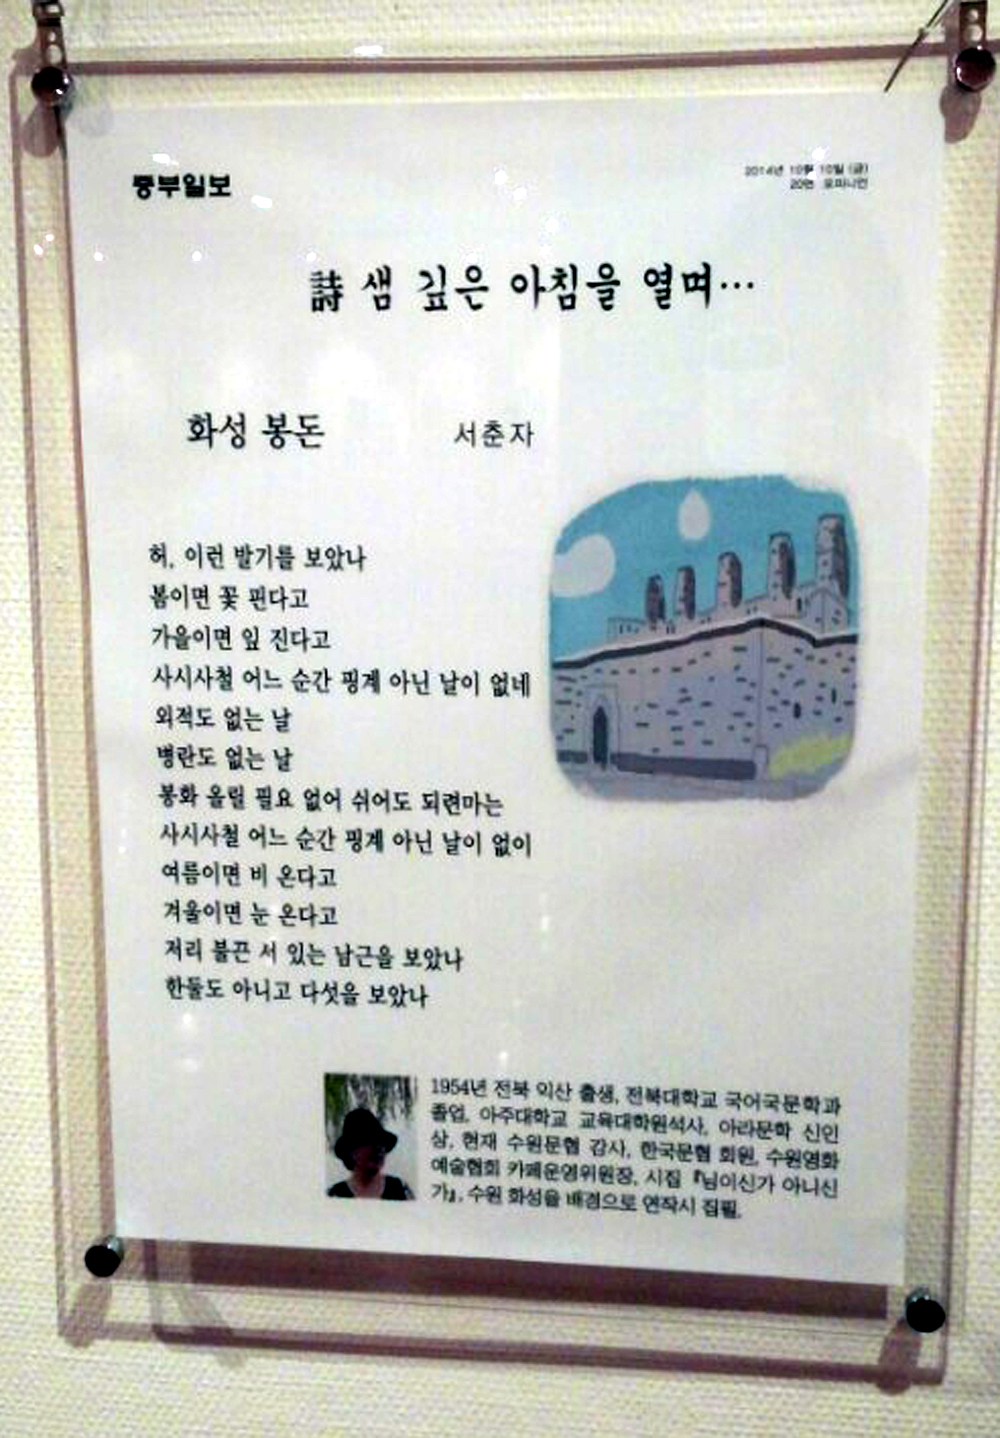 중부일보
2014년 10월 10일 (금)
20면 오피니언
詩 샘 깊은 아침을 열며…
화성 봉돈 서춘자
허, 이런 발기를 보았나
봄이면 꽃 핀다고
가을이면 잎 진다고
사시사철 어느 순간 핑계 아닌 날이 없네
외적도 없는 날
병란도 없는 날
봉화 올릴 필요 없어 쉬어도 되련마는
사시사철 어느 순간 핑계 아닌 날이 없이
여름이면 비 온다고
겨울이면 눈 온다고
저리 불끈 서 있는 남근을 보았나
한둘도 아니고 다섯을 보았나
1954년 전북 익산 출생, 전북대학교 국어국문학과
졸업, 아주대학교 교육대학원석사, 아라문학 신인
상, 현재 수원문협 감사, 한국문협 회원, 수원영화
예술협회 카페운영위원장, 시집 『님이신가 아니신
가』, 수원 화성을 배경으로 연작시 집필.